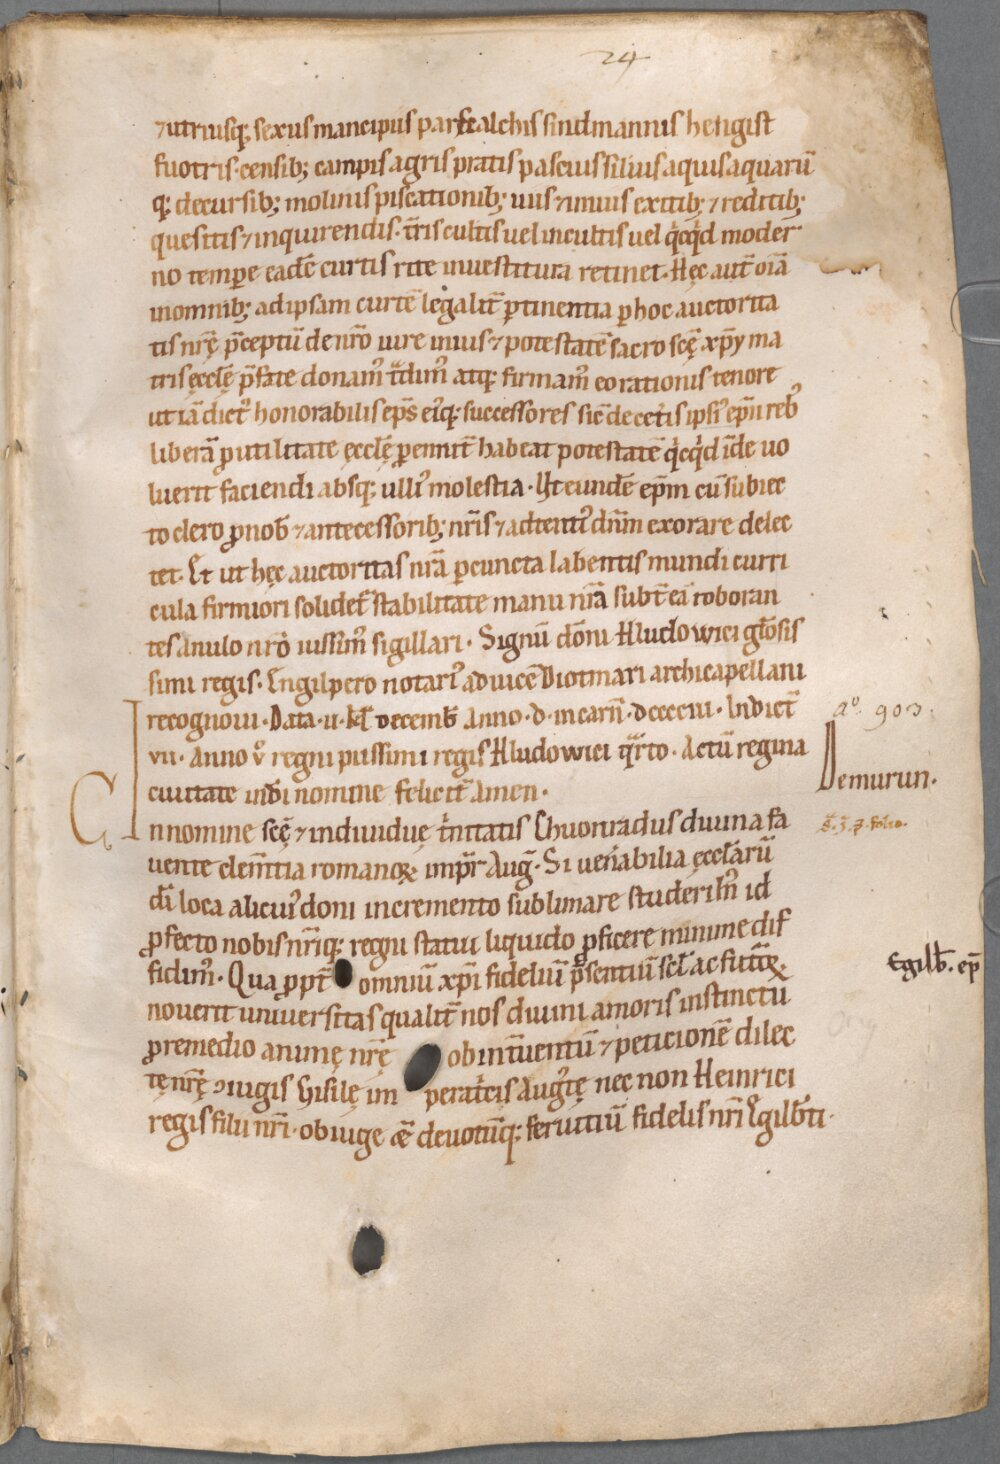 24
⁊ utriusq; sexus mancipiis parscalchis sindmannis hengist
fuotris. censib; campis agris pratis pascuis siluis aquis aquarū
q; decursib; molinis piscationib; uiis ⁊ inuiis exitib; ⁊ reditib;
quesitis ⁊ inquirendis. t̄ris cultis uel incultis uel qͥcqͥd moder
no tempore eadē curtis rite inuestitura retinet. Hęc aut̄ oīa
inomnib; ad ipsam curtē legalit̄ ꝑtinentia ꝑ hoc auctorita
tis nr̄ę p̄ceptū de nr̄o iure in ius ⁊ potestatē sacro scę̄ xp̄i ma
tris ęcclę̄ p̄fate donamꝰ t̄dimꝰ atq; firmamꝰ eo rationis tenore
ut iā dictꝰ honorabilis ep̄s eiꝰq; successores sic̄ de cet̄is ipsiꝰ ep̄ii rebꝰ
liberā ꝓ utilitate ęcclę̄ ꝑennit̄ habeat potestatē qͥcqͥd īde uo
luerit faciendi absq; ulliꝰ molestia. Ut eundē ep̄m cū subiec
to clero ꝓ nob̄ ⁊ antecessorib; nr̄is ⁊ adtentiꝰ dn̄m exorare delec
tet. Et ut hęc auctoritas nr̄a ꝑ cuncta labentis mundi curri
cula firmiori solidet̄ stabilitate manu nr̄a subt̄ eā roboran
tes anulo nr̄o iussimꝰ sigillari. Signū dōni Hludowici gl̄osis
simi regis. Engilpero notariꝰ ad uicē Diotmari archicapellani
recognoui. Data. ii. kl̄. decemb̄. Anno. d. incarn̄. dcccciii. Indict̄
vii. Anno v̊ regni piissimi regis Hludowici qͣrto. Actū regina
ciuitate in dī nomine felicit̄ Amen.
In nomine scę̄ ⁊ indiuiduę tͥnitatis Chuonradus diuina fa
uente clem̄tia romanoꝝ imp̄r Auḡ. Si uen̄abilia ęccl̄arū
dī loca alicuiꝰ doni incremento sublimare studerimꝰ id
ꝓfecto nobis nr̄iq; regni statui liquido ꝓficere minime dif
fidimꝰ. Qua ꝓpt̄ omniū xp̄i fideliū p̄sentiū scil̄ ac futuroꝝ
nouerit uniuersitas qualit̄ nos diuini amoris instinctu
ꝓ remedio animę nr̄ę ob int̄uentū ⁊ peticionē dilec
tę nr̄ę ↄiugis Gisilę im peratͥcis Augꝰtę nec non Heinrici
regis filii nr̄i. ob iuge ǣ deuotūq; seruitiū fidelis nr̄i Egilb̄ti.
aͦ. 903.
Demurun.
Egilb̄. ep̄